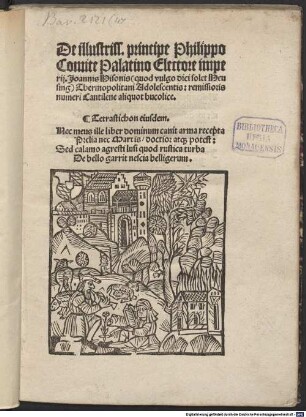 Bav. 2121 (w
De illustriss. principe Philippo
Comite Palatino Electore impe
rij. Joannis Nisonis (quod vulgo dici solet Neu
sing) Thermopolitani Adolescentis: remissioris
numeri Cantilene aliquot bucolice.
¶ Tetrastichon eiusdem.
Nec meus ille liber dominum canit arma recepta
Prelia nec Martis / doctio: atq; potest:
Sed calamo agresti lusi quod rustica turba
De bello garrit nescia belligerum.
BIBLIOTHECA
REGIA
MONACENSIS.